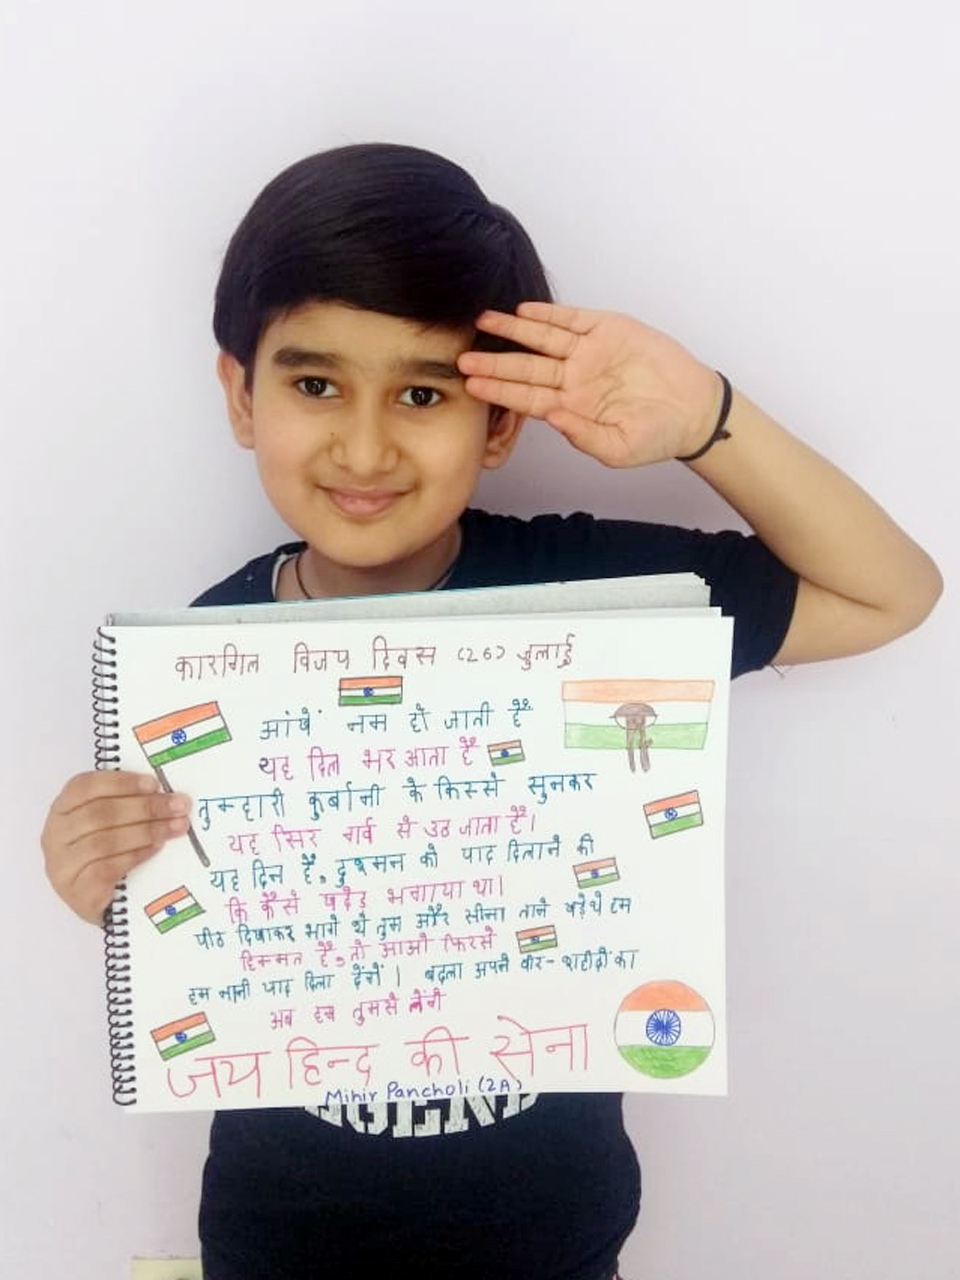 कारगिल विजय दिवस (26) जुलाई
आंखें नम हो जाती हैं
यह दिल भर आता है
तुम्हारी कुर्बानी के किस्से सुनकर
यह सिर गर्व से उठ जाता है।
यह दिन है, दुश्मन को याद दिलाने की
कि कैसे खदेड़ भगाया था।
पीठ दिखाकर भागे थे तुम और सीना ताने खड़े थे हम
हिम्मत है, तो आओ फिरसे
हम नानी याद दिला देंगें। बदला अपने वीर-शहीदों का
अब हम तुमसे लेंगे
जय हिन्द की सेना
Mihir Pancholi (2A)